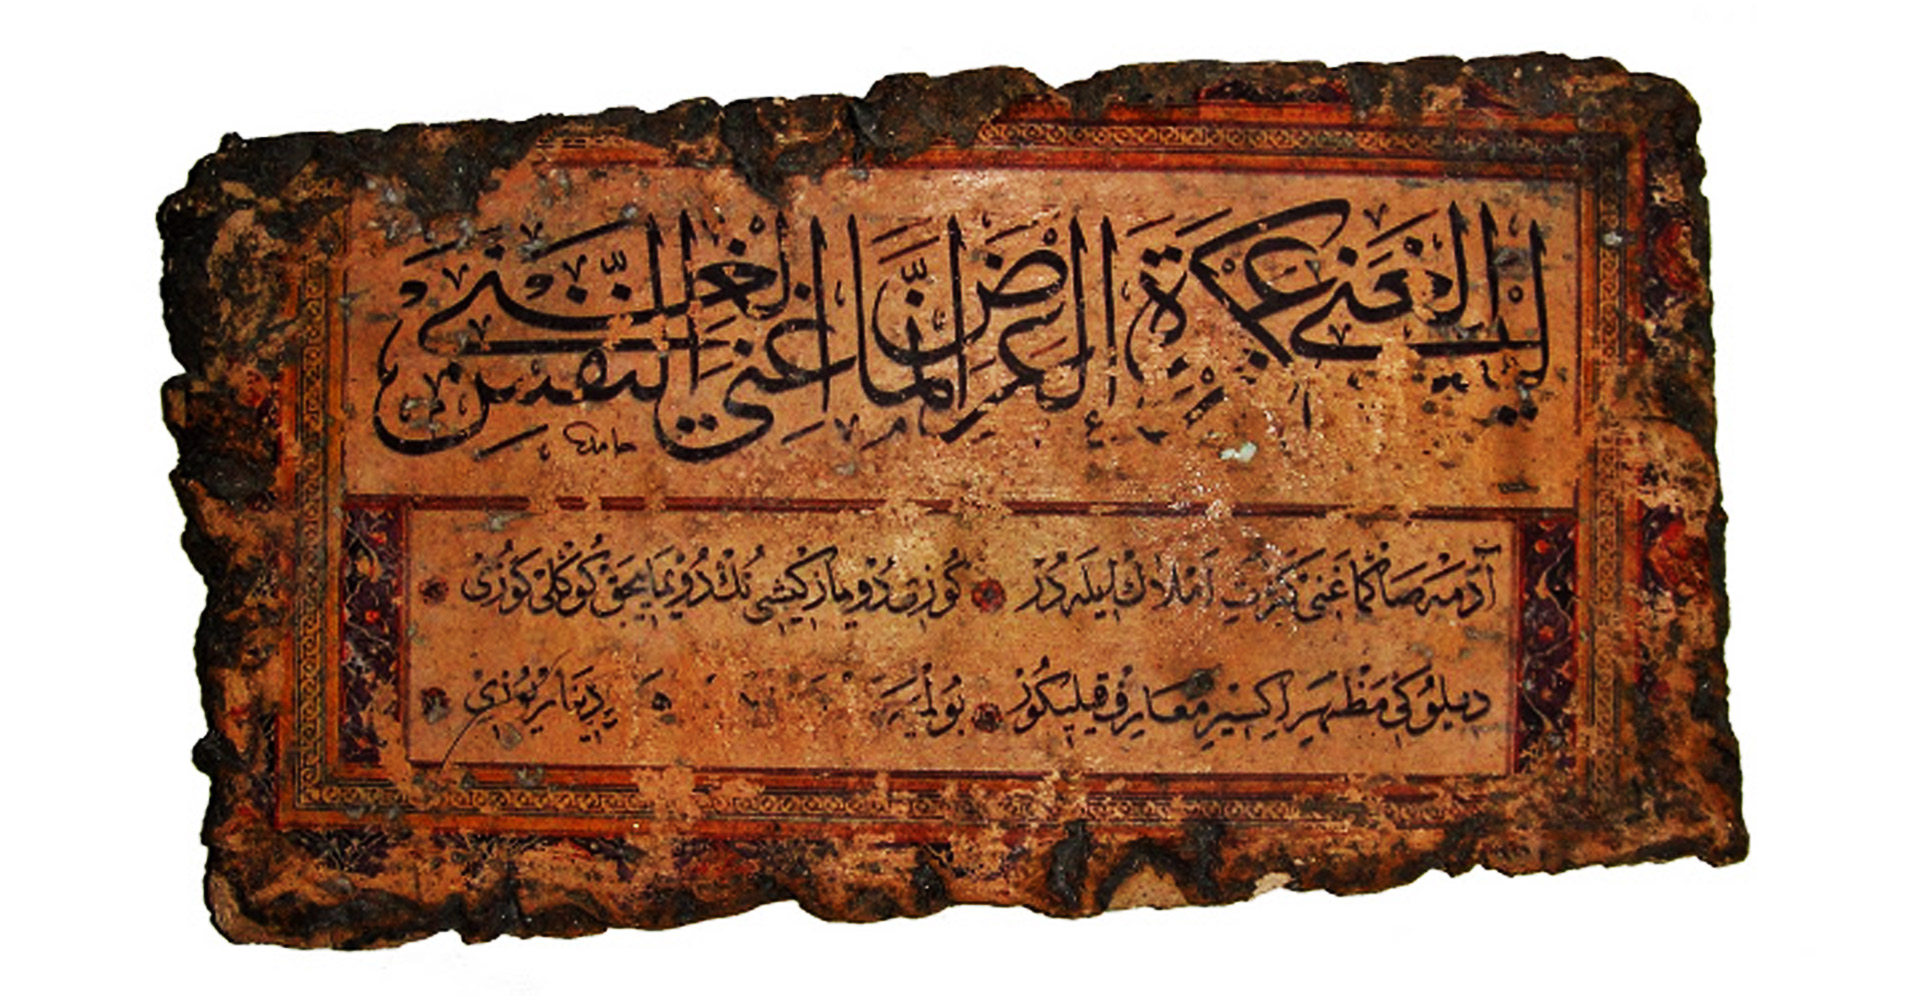 ليس الغنى عن كثرة العرض انما الغنى غنى النفس
حامد
آدمه صانما غنى كثرت املاك ايله در كوزى دويماز كيشى نك دويمايجق كوكلى كوزى
مظهر اكسير معارف قيليكور بولميه دينار يوزى